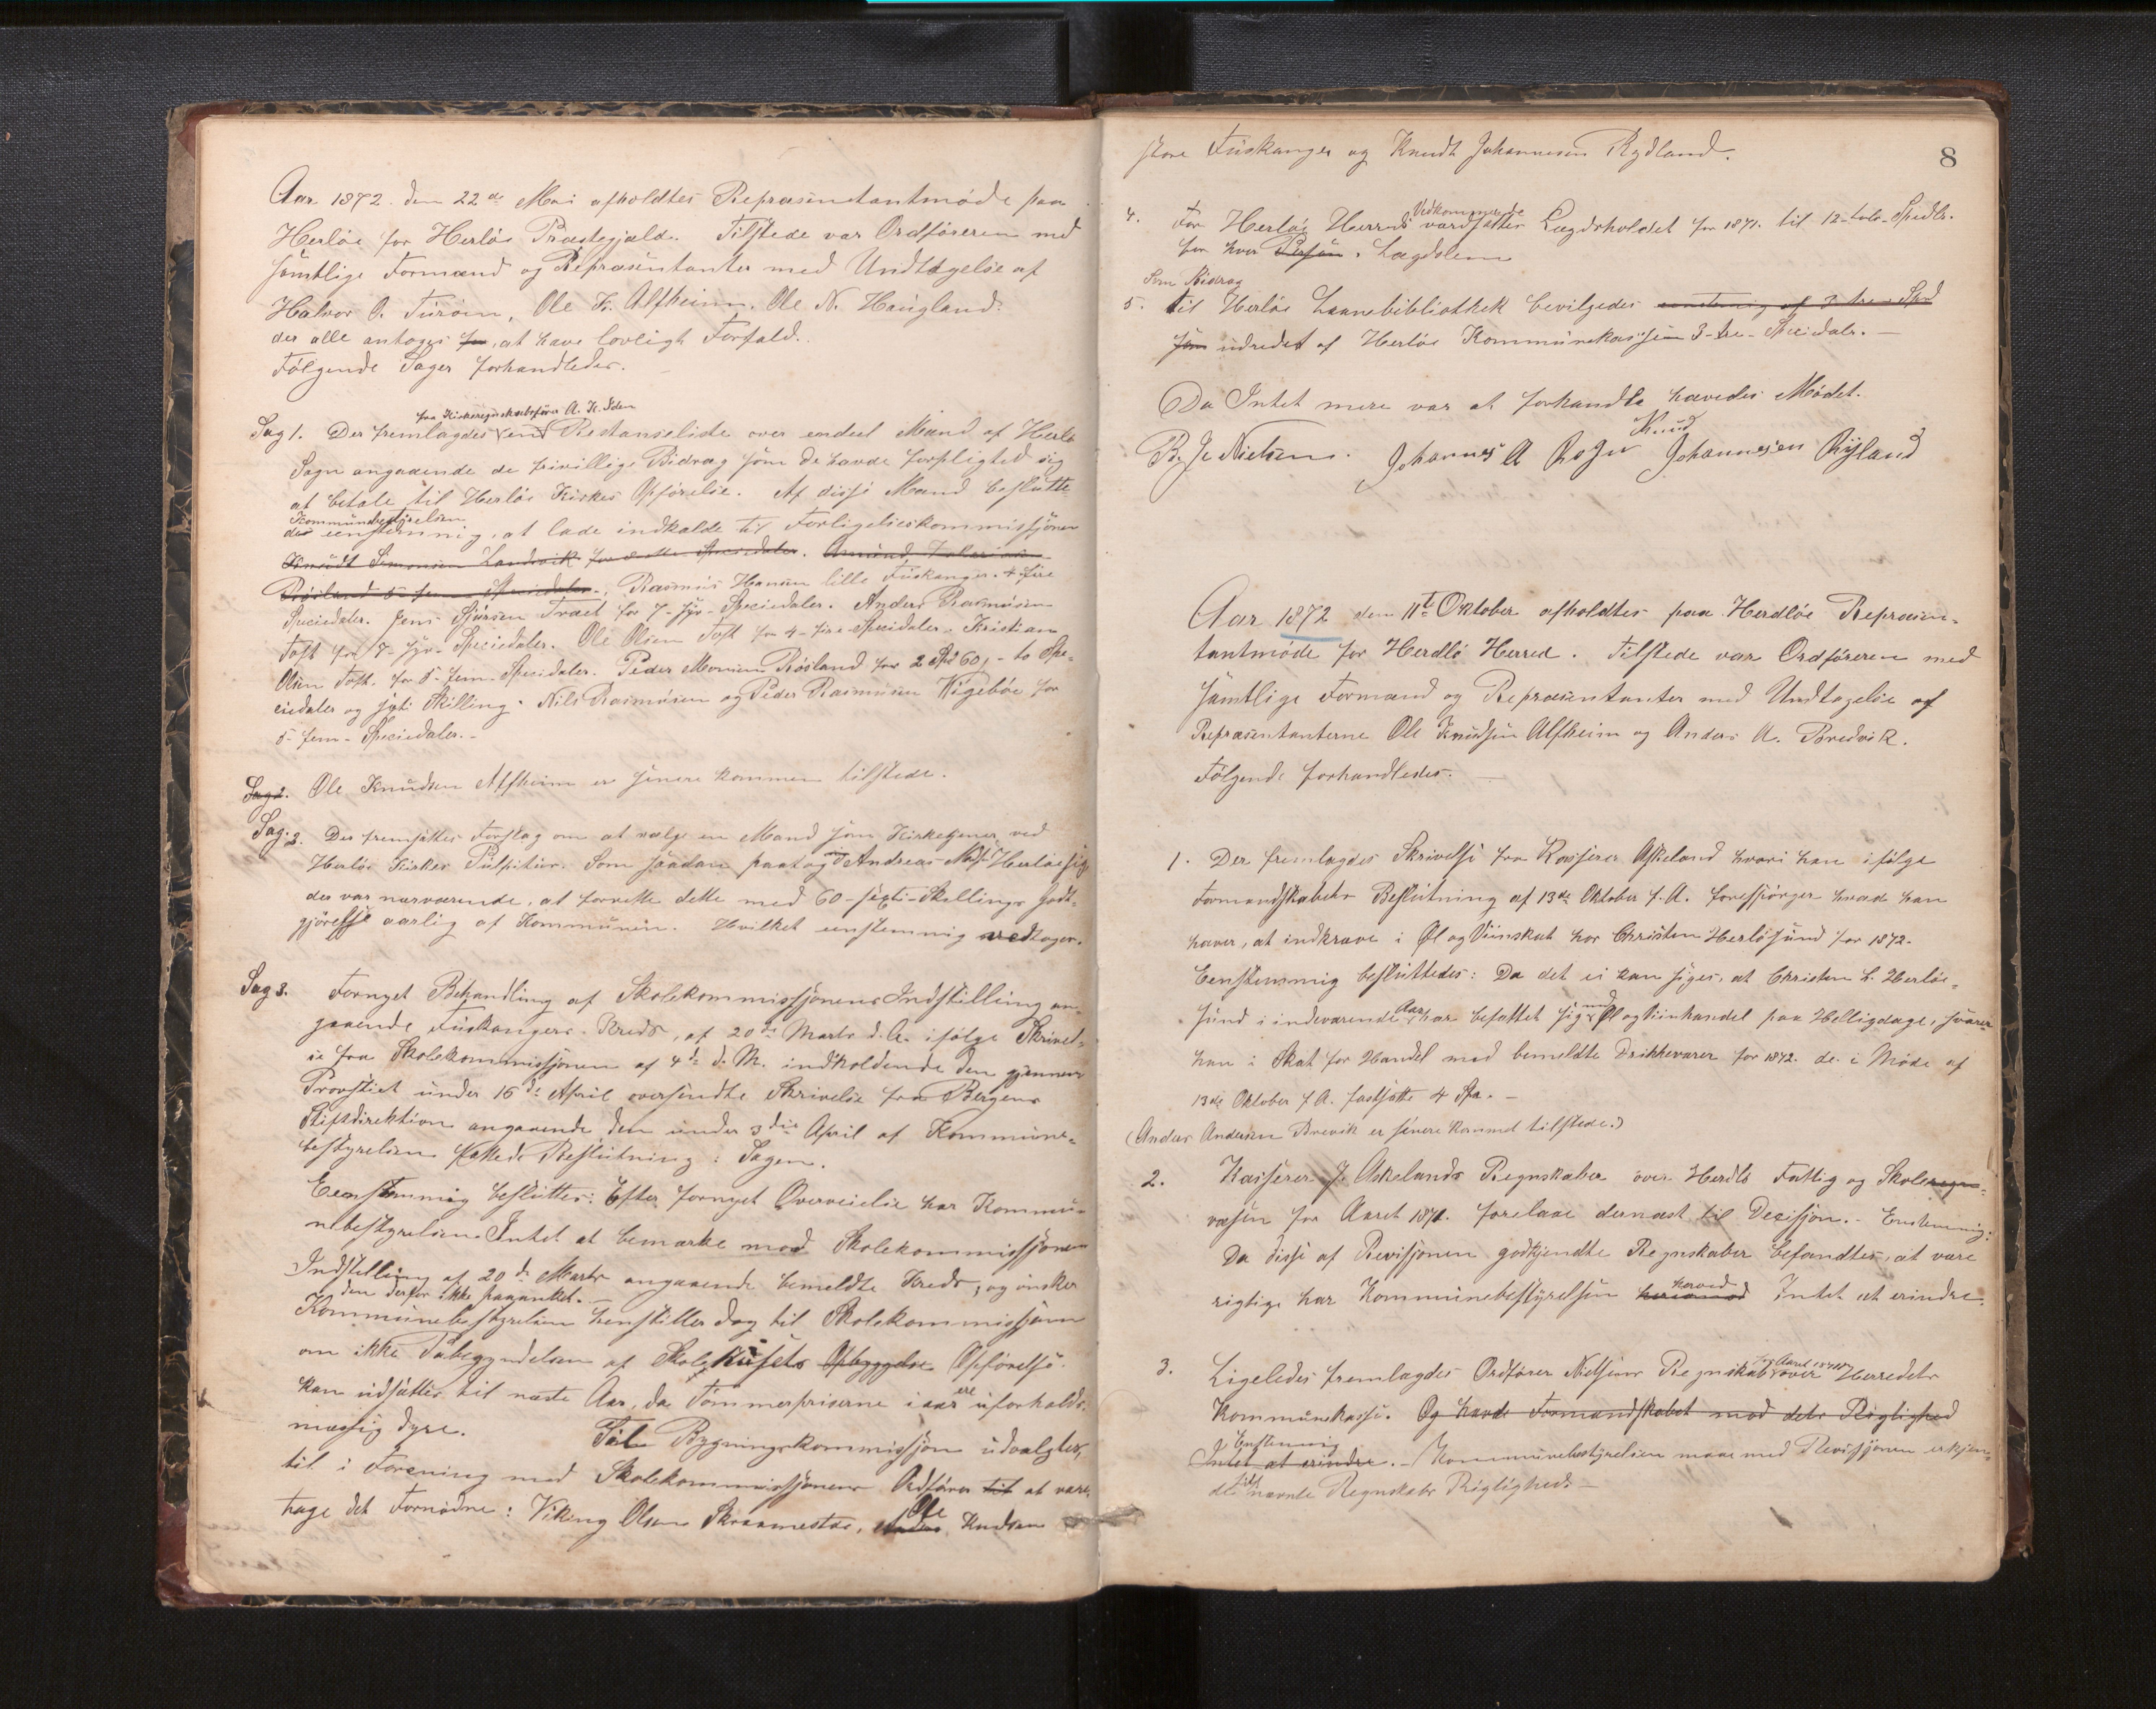 Aar 1872 den 22de Mai afholdtes Repræsentantmøde paa
Herløe for Herløe Præstegjæld. Tilstede var Ordføreren med
samtlige Formænd og Repræsentanter med Undtagelse af
Halvor O. Turøen, Ole K. Alfheim, Ole N. Haugland.
der alle antoges for, at have lovligt Forfald.
Følgende Sager forhandledes.
fra Kirkeregnskabsfører A. K. Iden
Sag 1. Der fremlagdes en Restanseliste over endeel Mænd af Herlø
Sogn angaaende de frivillige Bidrag som de havde forpligted sig
at betale til Herløe Kirkes Opførelse. Af disse Mænd beslutte-
Kommunebestyrelsen
des eenstemmig, at lade indkalde til Forligelseskommissjonen
Knudt Simonsen Landsvik for otte Speciedaler. Amund
Røsland 5 fem Speciedaler. Rasmus Hansen lille Fuskanger. 4 fire
Speciedaler. Jens Sjursen Træet for 7- syv- Speciedaler. Anders Rasmussen
Toft for 7- syv- Speciedaler. Ole Olsen Toft for 4- fire Speciedaler. Kristian
Olsen Toft for 5- fem- Speciedaler. Peder Monsen Røsland for 2 Spd 60,- to Spe-
ciedaler og sexti Skilling. Nils Rasmussen og Peder Rasmussen Vigebøe for
5- fem- Speciedaler.-
Sag 2. Ole Knudsen Alfheim er senere kommen tilstede.
Sag. 2. Der fremsattes Forslag om at vælge en Mand som Kirketjener ved
Herløe Kirkes Pulpitur. Som saadan paatog sig Andreas Herløe
der var nærværende, at forrette dette med 60- sexti- Skillings Godt-
gjørelse aarlig af Kommunen. Hvilket eenstemmig vedtoges.
Sag 3. Fornyet Behandling af Skolekommissjonens Indstilling an-
gaaende Fuskangers Kreds, af 20de Marts d.A. ifølge Skrivel-
se fra Skolekommissjonen af 4de d. M. indholdende den gjennem
Provstiet under 16de April oversendte Skrivelse fra Bergens
Stiftsdirektion angaaende den under 3die April af Kommune-
bestyrelsen fattede Beslutning i Sagen.
Eenstemmig besluttes: Efter fornyet Overveielse har Kommu-
nebestyrelsen Intet at bemærke mod Skolekommissjonens
Indstilling af 20de Marts angaaende bemeldte Kreds, og ønsker
den derfor ikke paaanket.
Kommunebestyrelsen henstiller dog til Skolekommissjonen
om ikke Paabegyndelsen af Skolehusets Opbyggelse Opførelse
kan udsættes til næste Aar, da Tømmerpriserne i aar ere uforholds-
mæssig dyre. Til Bygningskommissjon udvalgtes,
til i Forening med Skolekommissjonens Ordfører til at vare-
tage det Fornødne: Viking Olsen Skraamestø, Anders Ole Knudsen
8
store Fuskanger og Knudt Johannesen Rydland.
4. For Herløe Herreds Vedkommende værdsattes Lægdsholdet for 1871. til 12- tolv- Spedlr.
for hver Person. Lægdslem
Som Bidrag
5. til Herløe Laanebibliothek bevilgedes eenstemmig af 3 tre Spd
som udredet af Herløe Kommunekassen 3- tre- Speciedalr.-
Da Intet mere var at forhandle hævedes Mødet.
B. Je Nielsen. Johannes A Rossn Knud Johannesen Rÿland
Aar 1872 den 11te Oktober afholdtes paa Herdløe Repræsen-
tantmøde for Herdlø Herred. Tilstede var Ordføreren med
samtlige Formænd og Repræsentanter med Undtagelse af
Repræsentanterne Ole Knudsen Alfheim og Anders A. Bredvik.
Følgende forhandledes.
1. Der fremlagdes Skrivelse fra Kasserer Askeland hvori han ifølge
Formandskabets Beslutning af 13de Oktober f. A. forespørger hvad han
haver, at indkræve i Øl og Viinskat hos Christen Herløsund for 1872.
Eenstemmig besluttedes: Da det ei kan siges, at Christen L. Herløe-
sund i indeværende Aar har befattet sig med Øl og Viinhandel paa Helligdage, svarer
han i Skat for Handel med bemeldte Drikkevarer for 1872 de i Møde af
13de Oktober f A. fastsatte 4 Spd.-
(Anders Andersen Brevik er senere kommet tilstede.)
2. Kasserer J. Askelands Regnskaber over Herdlø Fattig og Skole
væsen for Aaret 1871. forelaae dernæst til Decisjon.- Enstemmig:
Da disse af Revisjonen godkjendte Regnskaber befandtes, at være
rigtige har Kommunebestyrelsen herimod herved Intet at erindre.
3. Ligeledes fremlagdes Ordfører Nielsens Regnskab for Aaret 1871 over Herredets
Kommunekasse. Og havde Formandskabet mod dets Rigtighed
Enstemmig
Intet at erindre.- Kommunebestyrelsen maae med Revisjonen erkjen-
de nævnte Regnskabs Rigtighed.-